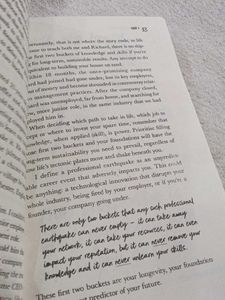 LAW 1
53
fortunately, that is not where the story ends, as life
came to teach both me and Richard, there is no skip
first two buckets of knowledge and skills if you're
for long-term, sustainable results. Any attempt to do
equivalent to building your house on sand.
Within 18 months, the once-promising company
had joined had gone under, lost its key employees,
out of money and become shrouded in controversy
management practices. After the company closed,
was unemployed, far from home, and searching for
new, more junior role, in the same industry that we had
loyed him in.
When deciding which path to take in life, which job to
or where to invest your spare time, remember that
knowledge, when applied (skill), is power. Prioritise filling
first two buckets and your foundations will have the
long-term sustainability you need to prevail, regardless of
life's tectonic plates move and shake beneath you.
I define a professional earthquake as an
able career event that adversely impacts you. This could
be anything: a technological innovation that disrupts your
whole industry, being fired by your employer, or if you're a
founder, your company going under.
There are only two buckets that any such professional
earthquake can never empty – it can take away
your network, it can take your resources, it can even
impact your reputation, but it can never remove your
knowledge and it can never unlearn your skills.
These first two buckets are your longevity, your foundation
predictor of your future.